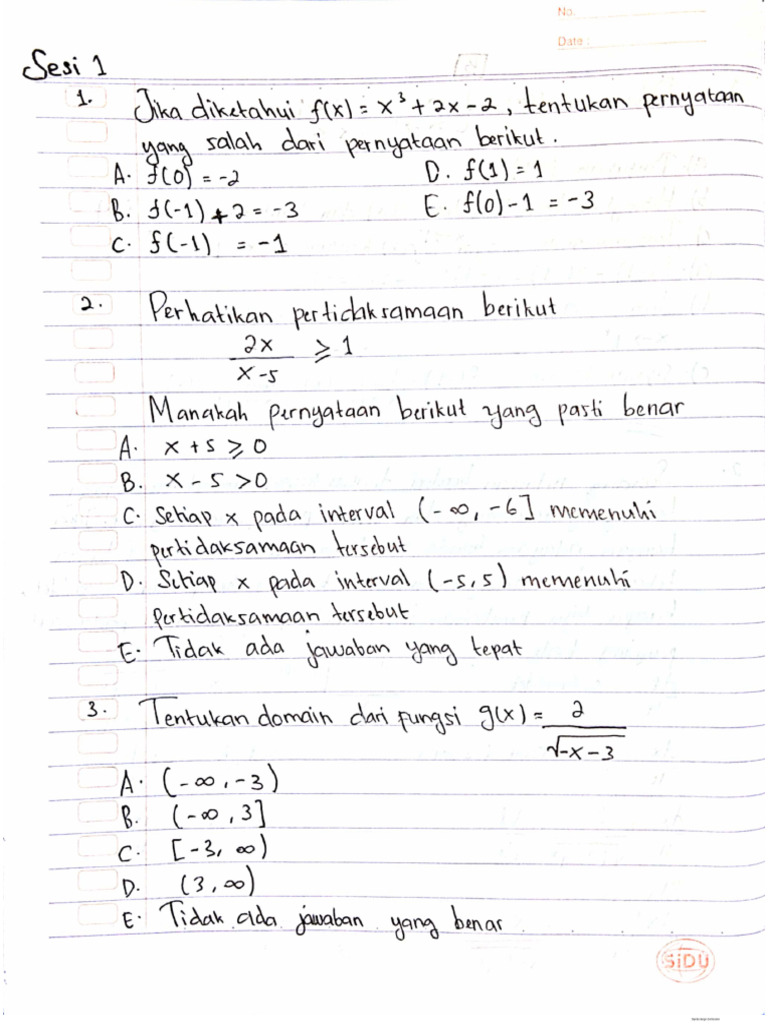 No.
Date :
Sesi 1
1. Jika diketahui f(x) = x³ + 2x - 2, tentukan pernyataan
yang salah dari pernyataan berikut.
A. f(0) = -2 D. f(1) = 1
B. f(-1) + 2 = -3 E. f(0) - 1 = -3
C. f(-1) = -1
2. Perhatikan pertidaksamaan berikut
2x
x - 5
≥ 1
Manakah pernyataan berikut yang pasti benar
A. x + 5 ≥ 0
B. x - 5 > 0
C. Setiap x pada interval (-∞, -6] memenuhi
pertidaksamaan tersebut
D. Setiap x pada interval (-5, 5) memenuhi
pertidaksamaan tersebut
E. Tidak ada jawaban yang tepat
3. Tentukan domain dari fungsi g(x) = 2
√-x-3
A. (-∞, -3)
B. (-∞, 3]
C. [-3, ∞)
D. (3, ∞)
E. Tidak ada jawaban yang benar
SiDU